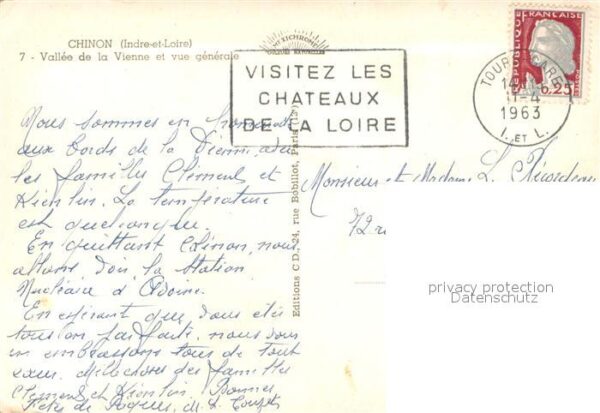 CHINON (Indre-et-Loire)
7 - Vallée de la Vienne et vue générale
MEXICHROME
VISITEZ LES
CHATEAUX
DE LA LOIRE
REPUBLIQUE FRANÇAISE
0,25
TOURS GARE
11-4
1963
I. ET L.
Editions C.D., 24, rue Bobillot, Paris (13e)
Nous sommes en
aux bords de la Vienne, avec
les familles Clement et
La température
est quelconque.
En quittant Chinon, nous
allons voir la station
Nucléaire d'Avoine.
En espérant que vous êtes
tous en forfaite, nous vous
embrassons tous de tout
cœur. des familles
Clement et Bonnes
Fêtes de Pâques
Monsieur et Madame L.
72 r
privacy protection
Datenschutz